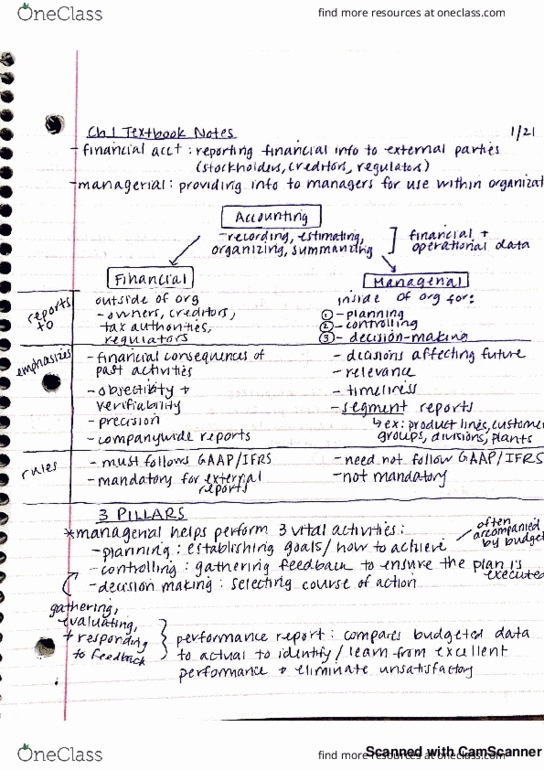 OneClass
find more resources at oneclass.com
Ch 1 Textbook Notes
1/21
- financial acct : reporting financial info to external parties
(stockholders, creditors, regulators)
- managerial : providing info to managers for use within organizat
Accounting
- recording, estimating,
organizing, summarizing
financial +
operational data
Financial
Managerial
reports
to
outside of org
- owners, creditors,
tax authorities,
regulators
inside of org for:
① - planning
② - controlling
③ - decision-making
emphasizes
- financial consequences of
past activities
- objectivity +
verifiability
- precision
- companywide reports
- decisions affecting future
- relevance
- timeliness
- segment reports
↳ ex: product lines, customer
groups, divisions, plants
rules
- must follow GAAP/IFRS
- mandatory for external
reports
- need not follow GAAP/IFRS
- not mandatory
3 PILLARS
* managerial helps perform 3 vital activities :
- planning : establishing goals / how to achieve
often
accompanied
by budget
- controlling : gathering feedback to ensure the plan is
executed
- decision making : selecting course of action
gathering,
evaluating,
+ responding
to feedback
performance report : compares budgeted data
to actual to identify / learn from excellent
performance + eliminate unsatisfactory
OneClass
find more resources at oneclass.com
Scanned with CamScanner